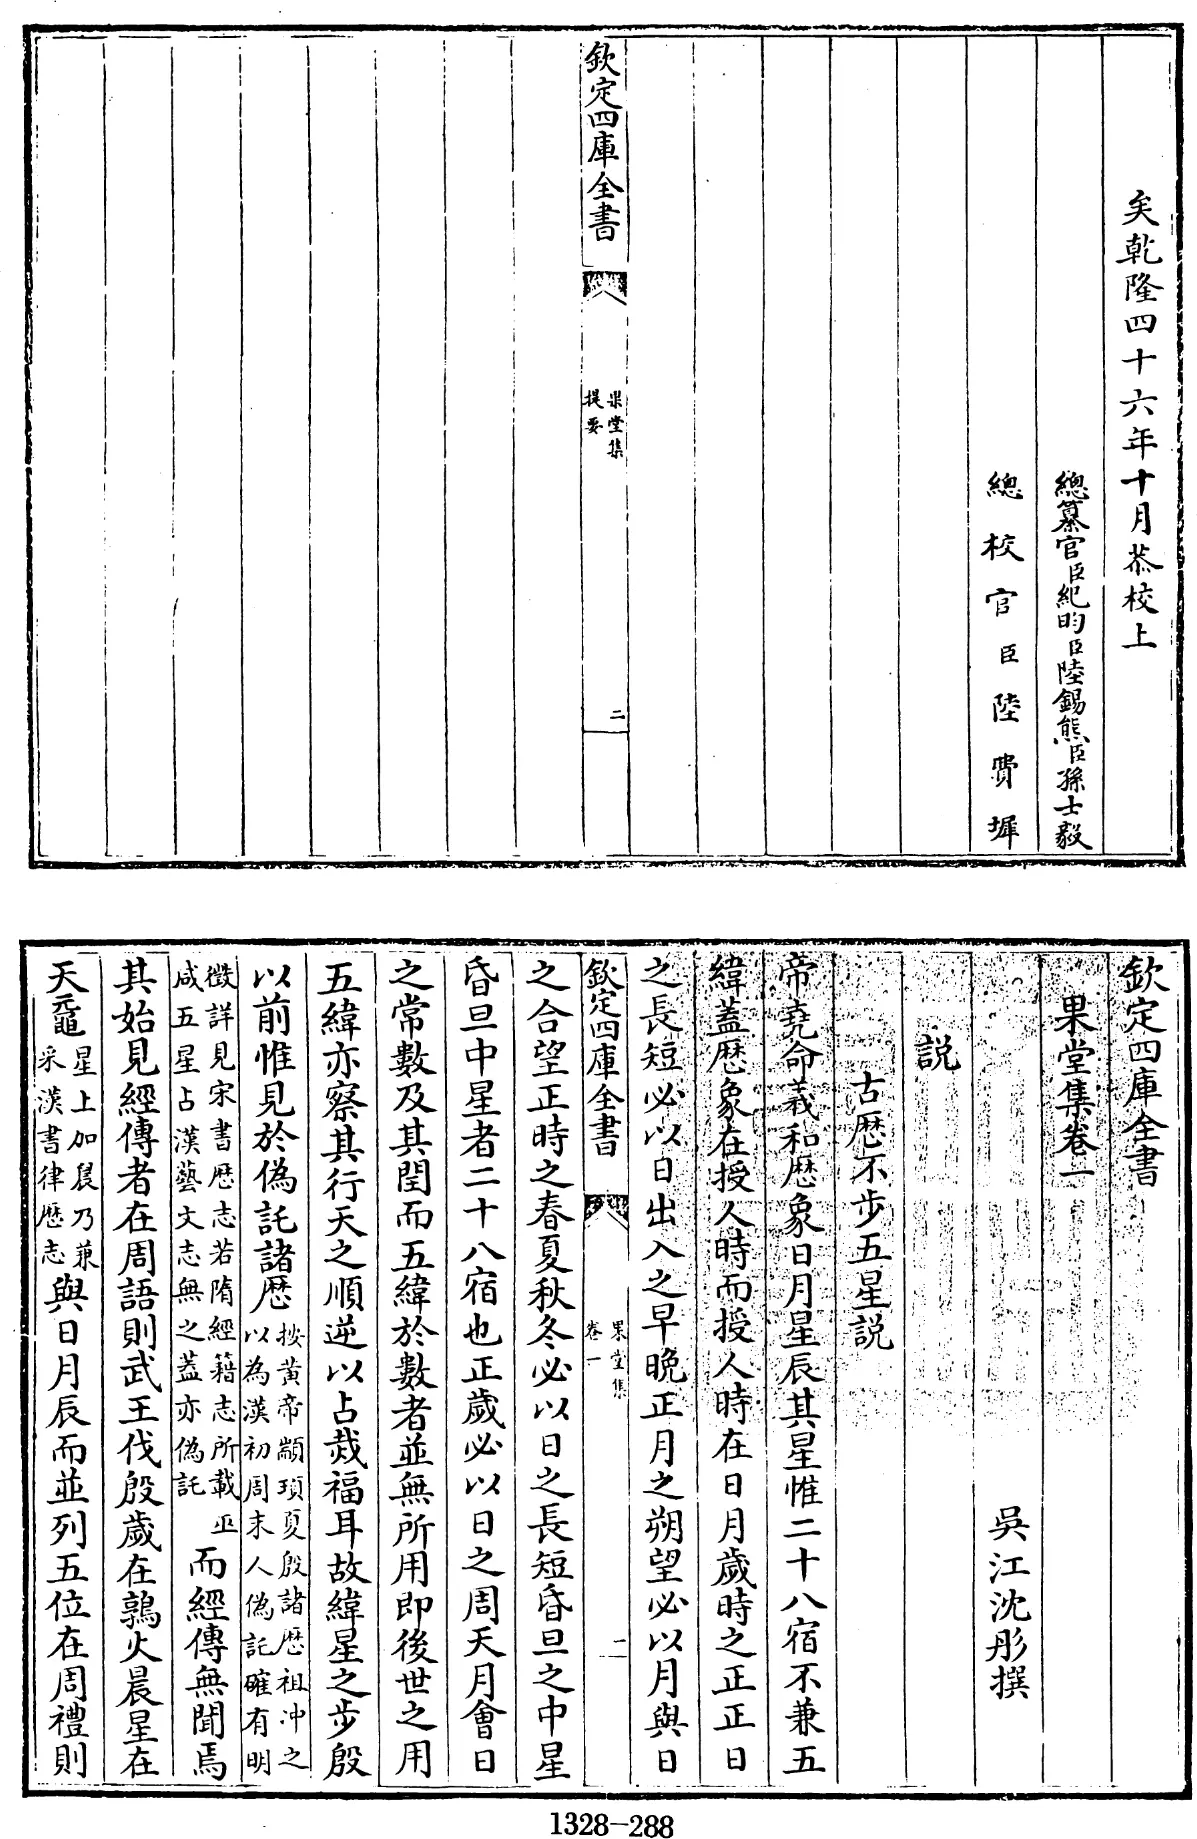 矣乾隆四十六年十月恭校上
總纂官臣紀昀臣陸錫熊臣孫士毅
總校官臣陸費墀
欽定四庫全書
果堂集
提要
二
欽定四庫全書
果堂集卷一
吳江沈彤撰
説
古厯不步五星説
帝堯命羲和厯象日月星辰其星惟二十八宿不兼五
緯蓋厯象在授人時而授人時在日月歲時之正正日
之長短必以日出入之早晚正月之朔望必以月與日
欽定四庫全書
果堂集
卷一
一
之合望正時之春夏秋冬必以日之長短昏旦之中星
昏旦中星者二十八宿也正歲必以日之周天月會日
之常數及其閏而五緯於數者並無所用即後世之用
五緯亦察其行天之順逆以占烖福耳故緯星之步殷
以前惟見於偽託諸厯
按黄帝顓頊夏殷諸厯祖冲之
以為漢初周末人偽託確有明
徵詳見宋書厯志若隋經籍志所載巫
咸五星占漢藝文志無之蓋亦偽託
而經傳無聞焉
其始見經傳者在周語則武王伐殷歲在鶉火晨星在
天黿
星上加晨乃兼
采漢書律厯志
與日月辰而並列五位在周禮則
1328-288